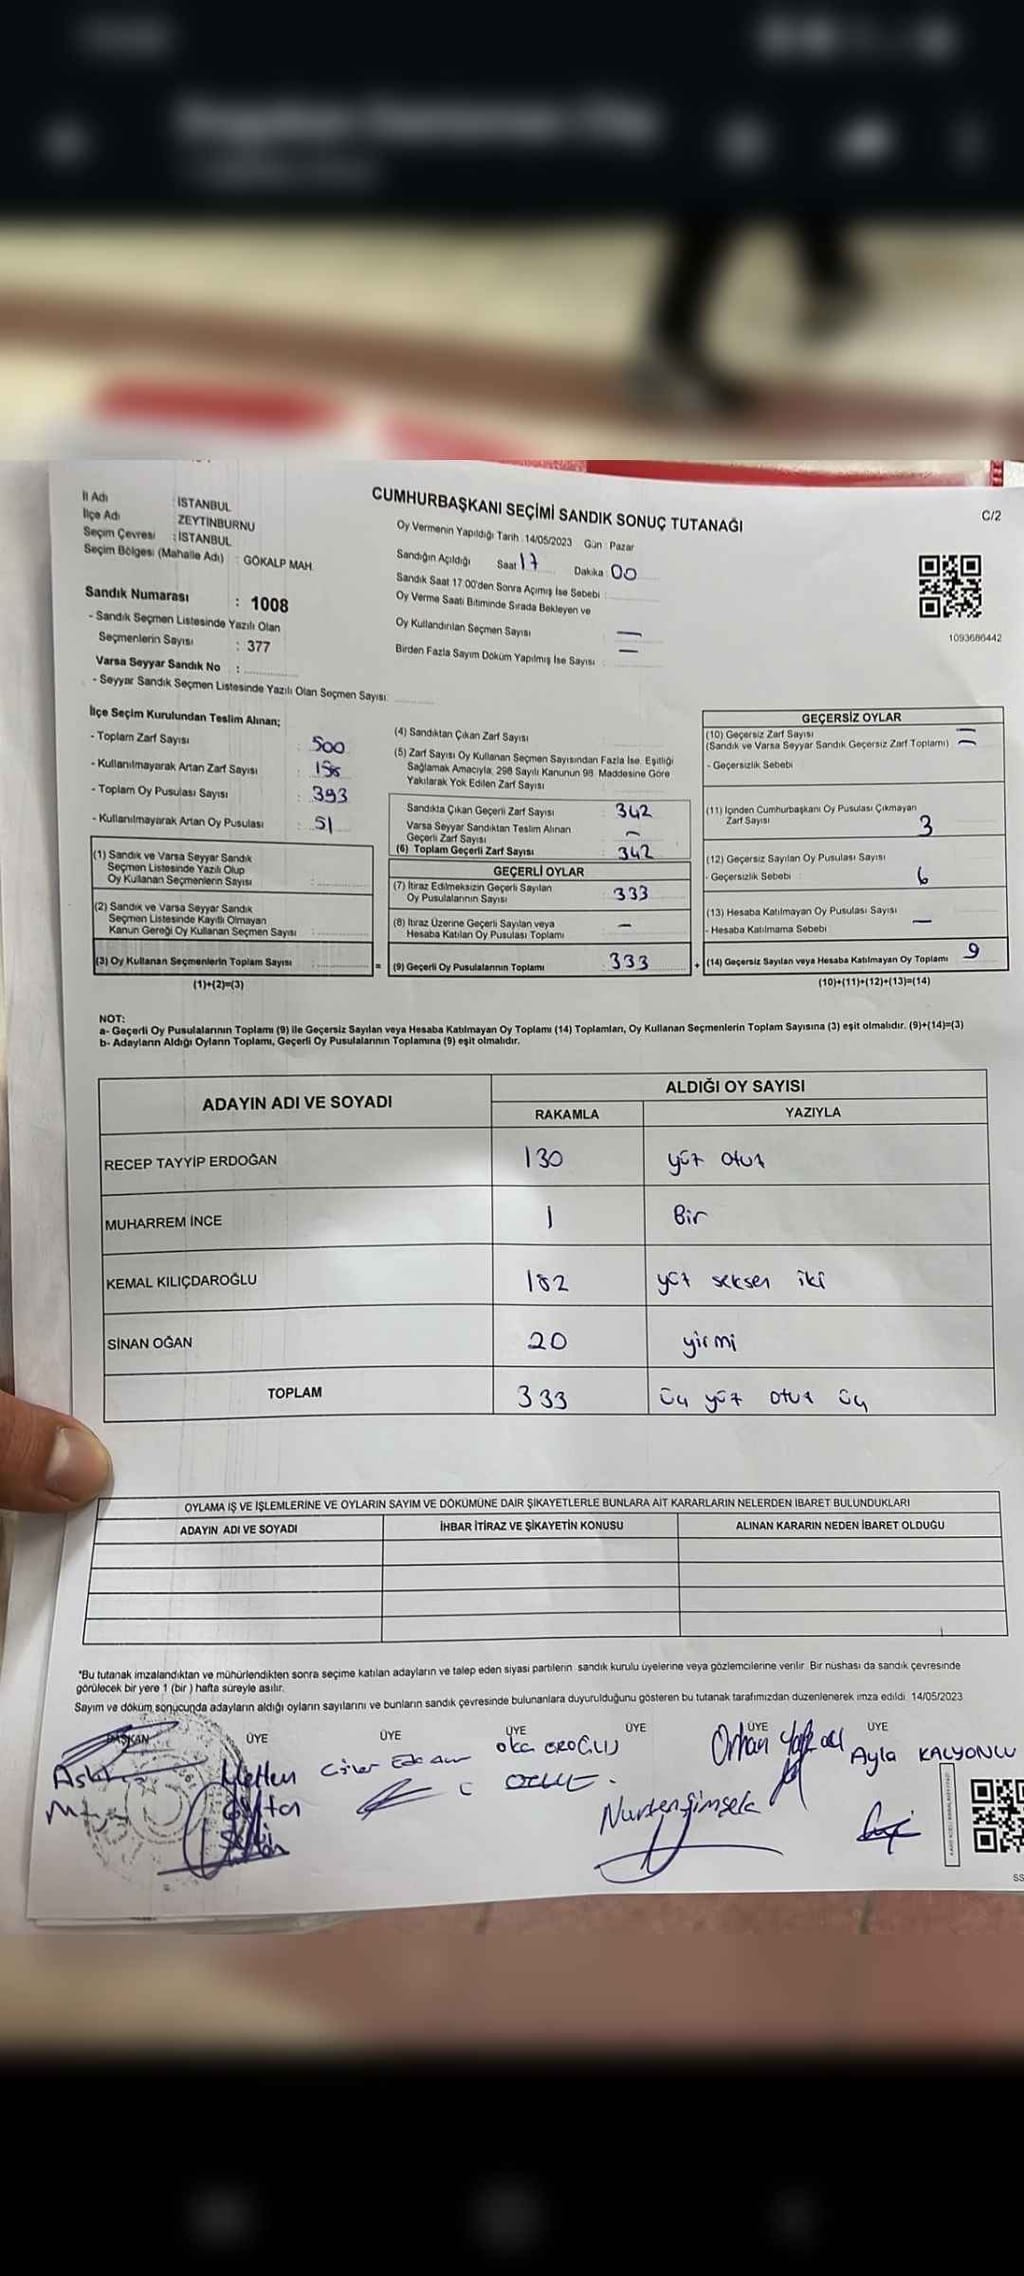 CUMHURBAŞKANI SEÇİMİ SANDIK SONUÇ TUTANAĞI
C/2
İl Adı : İSTANBUL
İlçe Adı : ZEYTİNBURNU
Seçim Çevresi : İSTANBUL
Seçim Bölgesi (Mahalle Adı) : GÖKALP MAH.
Sandık Numarası : 1008
- Sandık Seçmen Listesinde Yazılı Olan
Seçmenlerin Sayısı : 377
Varsa Seyyar Sandık No :
- Seyyar Sandık Seçmen Listesinde Yazılı Olan Seçmen Sayısı:
Oy Vermenin Yapıldığı Tarih : 14/05/2023 Gün : Pazar
Sandığın Açıldığı Saat 17 Dakika : 00
Sandık Saat 17:00'den Sonra Açımış İse Sebebi :
Oy Verme Saati Bitiminde Sırada Bekleyen ve
Oy Kullandırılan Seçmen Sayısı
Birden Fazla Sayım Döküm Yapılmış İse Sayısı :
1093686442
İlçe Seçim Kurulundan Teslim Alınan;
- Toplam Zarf Sayısı : 500
- Kullanılmayarak Artan Zarf Sayısı :
- Toplam Oy Pusulası Sayısı : 393
- Kullanılmayarak Artan Oy Pusulası : 51
(1) Sandık ve Varsa Seyyar Sandık
Seçmen Listesinde Yazılı Olup
Oy Kullanan Seçmenlerin Sayısı :
(2) Sandık ve Varsa Seyyar Sandık
Seçmen Listesinde Kayıtlı Olmayan
Kanun Gereği Oy Kullanan Seçmen Sayısı :
(3) Oy Kullanan Seçmenlerin Toplam Sayısı :
(1)+(2)=(3)
(4) Sandıktan Çıkan Zarf Sayısı
(5) Zarf Sayısı Oy Kullanan Seçmen Sayısından Fazla İse, Eşitliği
Sağlamak Amacıyla; 298 Sayılı Kanunun 98. Maddesine Göre
Yakılarak Yok Edilen Zarf Sayısı
Sandıkta Çıkan Geçerli Zarf Sayısı : 342
Varsa Seyyar Sandıktan Teslim Alınan
Geçerli Zarf Sayısı : –
(6) Toplam Geçerli Zarf Sayısı : 342
GEÇERLİ OYLAR
(7) İtiraz Edilmeksizin Geçerli Sayılan
Oy Pusulalarının Sayısı : 333
(8) İtiraz Üzerine Geçerli Sayılan veya
Hesaba Katılan Oy Pusulası Toplamı : –
= (9) Geçerli Oy Pusulalarının Toplamı : 333
GEÇERSİZ OYLAR
(10) Geçersiz Zarf Sayısı
(Sandık ve Varsa Seyyar Sandık Geçersiz Zarf Toplamı) =
- Geçersizlik Sebebi :
(11) İçinden Cumhurbaşkanı Oy Pusulası Çıkmayan
Zarf Sayısı : 3
(12) Geçersiz Sayılan Oy Pusulası Sayısı
- Geçersizlik Sebebi : 6
(13) Hesaba Katılmayan Oy Pusulası Sayısı : –
- Hesaba Katılmama Sebebi :
+ (14) Geçersiz Sayılan veya Hesaba Katılmayan Oy Toplamı : 9
(10)+(11)+(12)+(13)=(14)
NOT:
a- Geçerli Oy Pusulalarının Toplamı (9) ile Geçersiz Sayılan veya Hesaba Katılmayan Oy Toplamı (14) Toplamları, Oy Kullanan Seçmenlerin Toplam Sayısına (3) eşit olmalıdır. (9)+(14)=(3)
b- Adayların Aldığı Oyların Toplamı, Geçerli Oy Pusulalarının Toplamına (9) eşit olmalıdır.
ADAYIN ADI VE SOYADI
ALDIĞI OY SAYISI
RAKAMLA YAZIYLA
RECEP TAYYİP ERDOĞAN 130 yüz otuz
MUHARREM İNCE 1 Bir
KEMAL KILIÇDAROĞLU 182 yüz seksen iki
SİNAN OĞAN 20 yirmi
TOPLAM 333 üç yüz otuz üç
OYLAMA İŞ VE İŞLEMLERİNE VE OYLARIN SAYIM VE DÖKÜMÜNE DAİR ŞİKAYETLERLE BUNLARA AİT KARARLARIN NELERDEN İBARET BULUNDUKLARI
ADAYIN ADI VE SOYADI İHBAR İTİRAZ VE ŞİKAYETİN KONUSU ALINAN KARARIN NEDEN İBARET OLDUĞU
*Bu tutanak imzalandıktan ve mühürlendikten sonra seçime katılan adayların ve talep eden siyasi partilerin sandık kurulu üyelerine veya gözlemcilerine verilir. Bir nüshası da sandık çevresinde
görülecek bir yere 1 (bir ) hafta süreyle asılır.
Sayım ve döküm sonucunda adayların aldığı oyların sayılarını ve bunların sandık çevresinde bulunanlara duyurulduğunu gösteren bu tutanak tarafımızdan düzenlenerek imza edildi. 14/05/2023
BAŞKAN ÜYE ÜYE ÜYE ÜYE ÜYE ÜYE
Orhan
Ayla KALYONCU
Nurten Şimşek